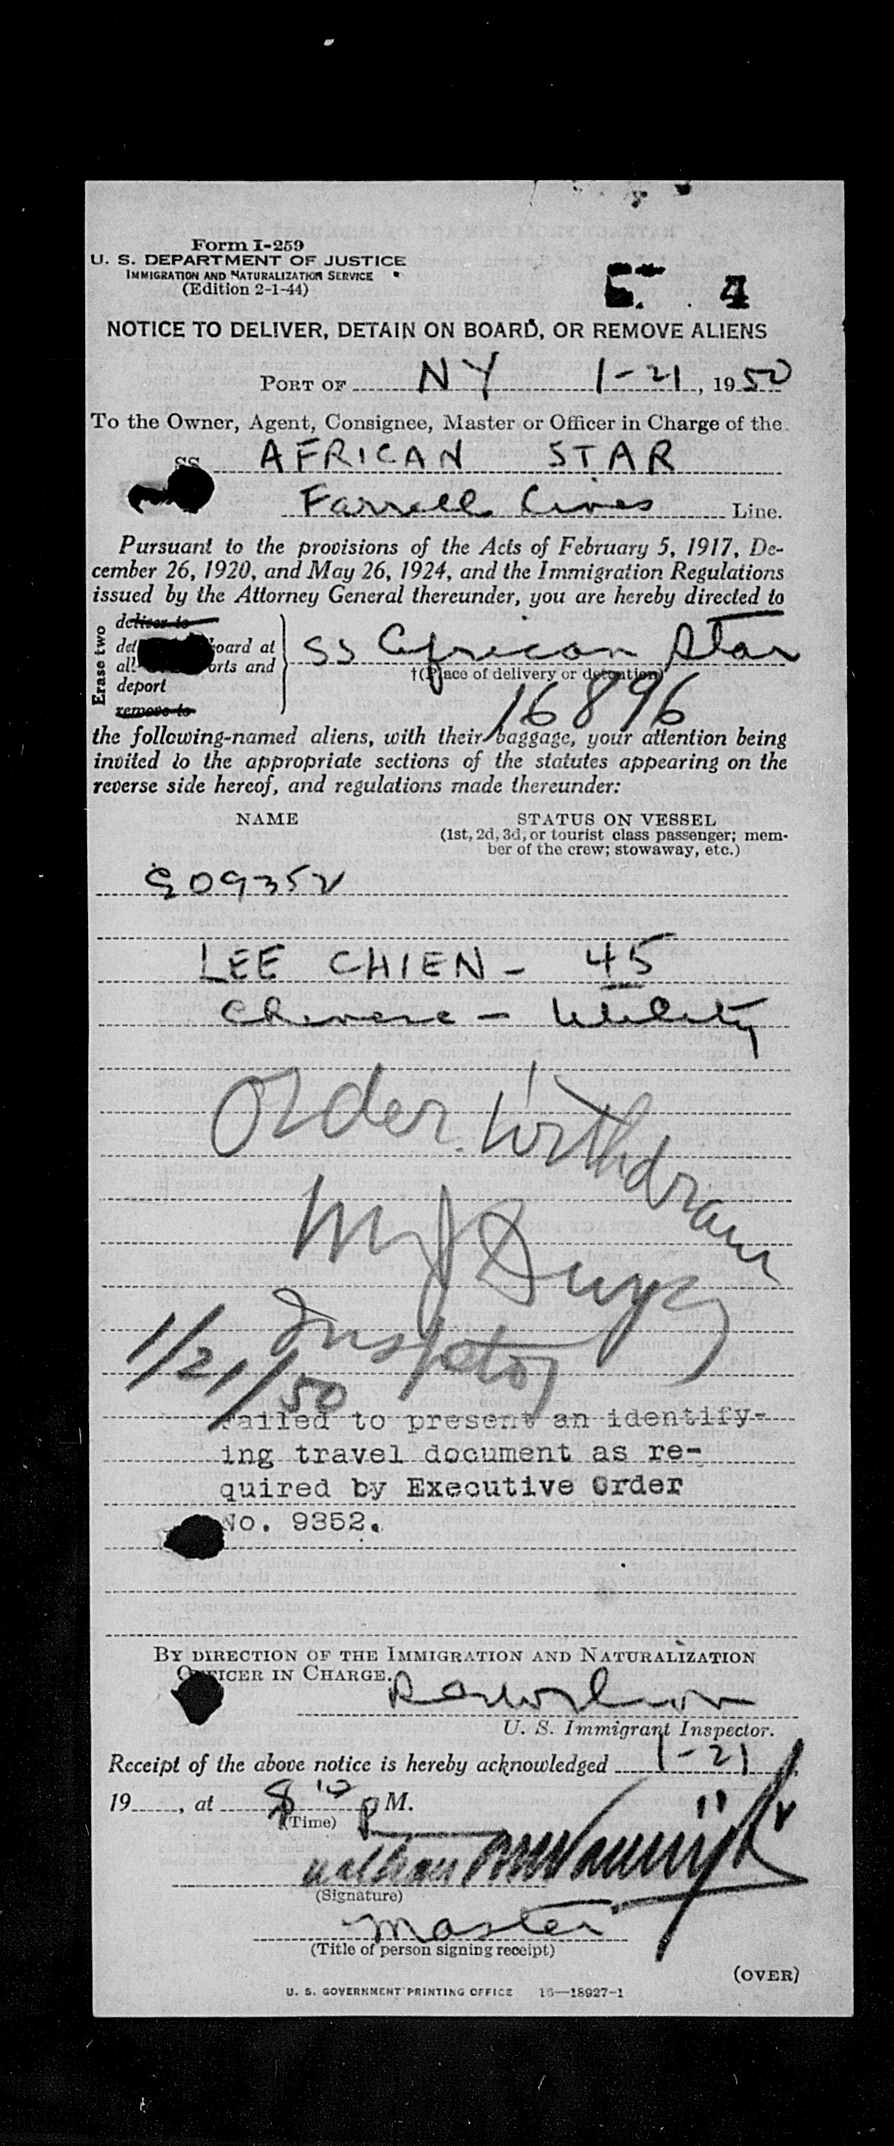 Form I-259
U. S. DEPARTMENT OF JUSTICE
IMMIGRATION AND NATURALIZATION SERVICE
(Edition 2-1-44)
4
NOTICE TO DELIVER, DETAIN ON BOARD, OR REMOVE ALIENS
PORT OF NY 1-21, 1950
To the Owner, Agent, Consignee, Master or Officer in Charge of the
SS AFRICAN STAR
Farrell Lines Line.
Pursuant to the provisions of the Acts of February 5, 1917, De-
cember 26, 1920, and May 26, 1924, and the Immigration Regulations
issued by the Attorney General thereunder, you are hereby directed to
Erase two
deliver to
board at
and
deport
remove to
SS African Star
†(Place of delivery or detention)
16896
the following-named aliens, with their baggage, your attention being
invited to the appropriate sections of the statutes appearing on the
reverse side hereof, and regulations made thereunder:
NAME STATUS ON VESSEL
(1st, 2d, 3d, or tourist class passenger; mem-
ber of the crew; stowaway, etc.)
909352
LEE CHIEN - 45
Chinese - Utility
Order Withdrawn
Inspector
1/21/50
Failed to present an identify-
ing travel document as re-
quired by Executive Order
No. 9352.
BY DIRECTION OF THE IMMIGRATION AND NATURALIZATION
OFFICER IN CHARGE.
U. S. Immigrant Inspector.
Receipt of the above notice is hereby acknowledged 1-21,
19, at 8 10 P M.
(Time)
(Signature)
master
(Title of person signing receipt)
(OVER)
U. S. GOVERNMENT PRINTING OFFICE 16—18927-1